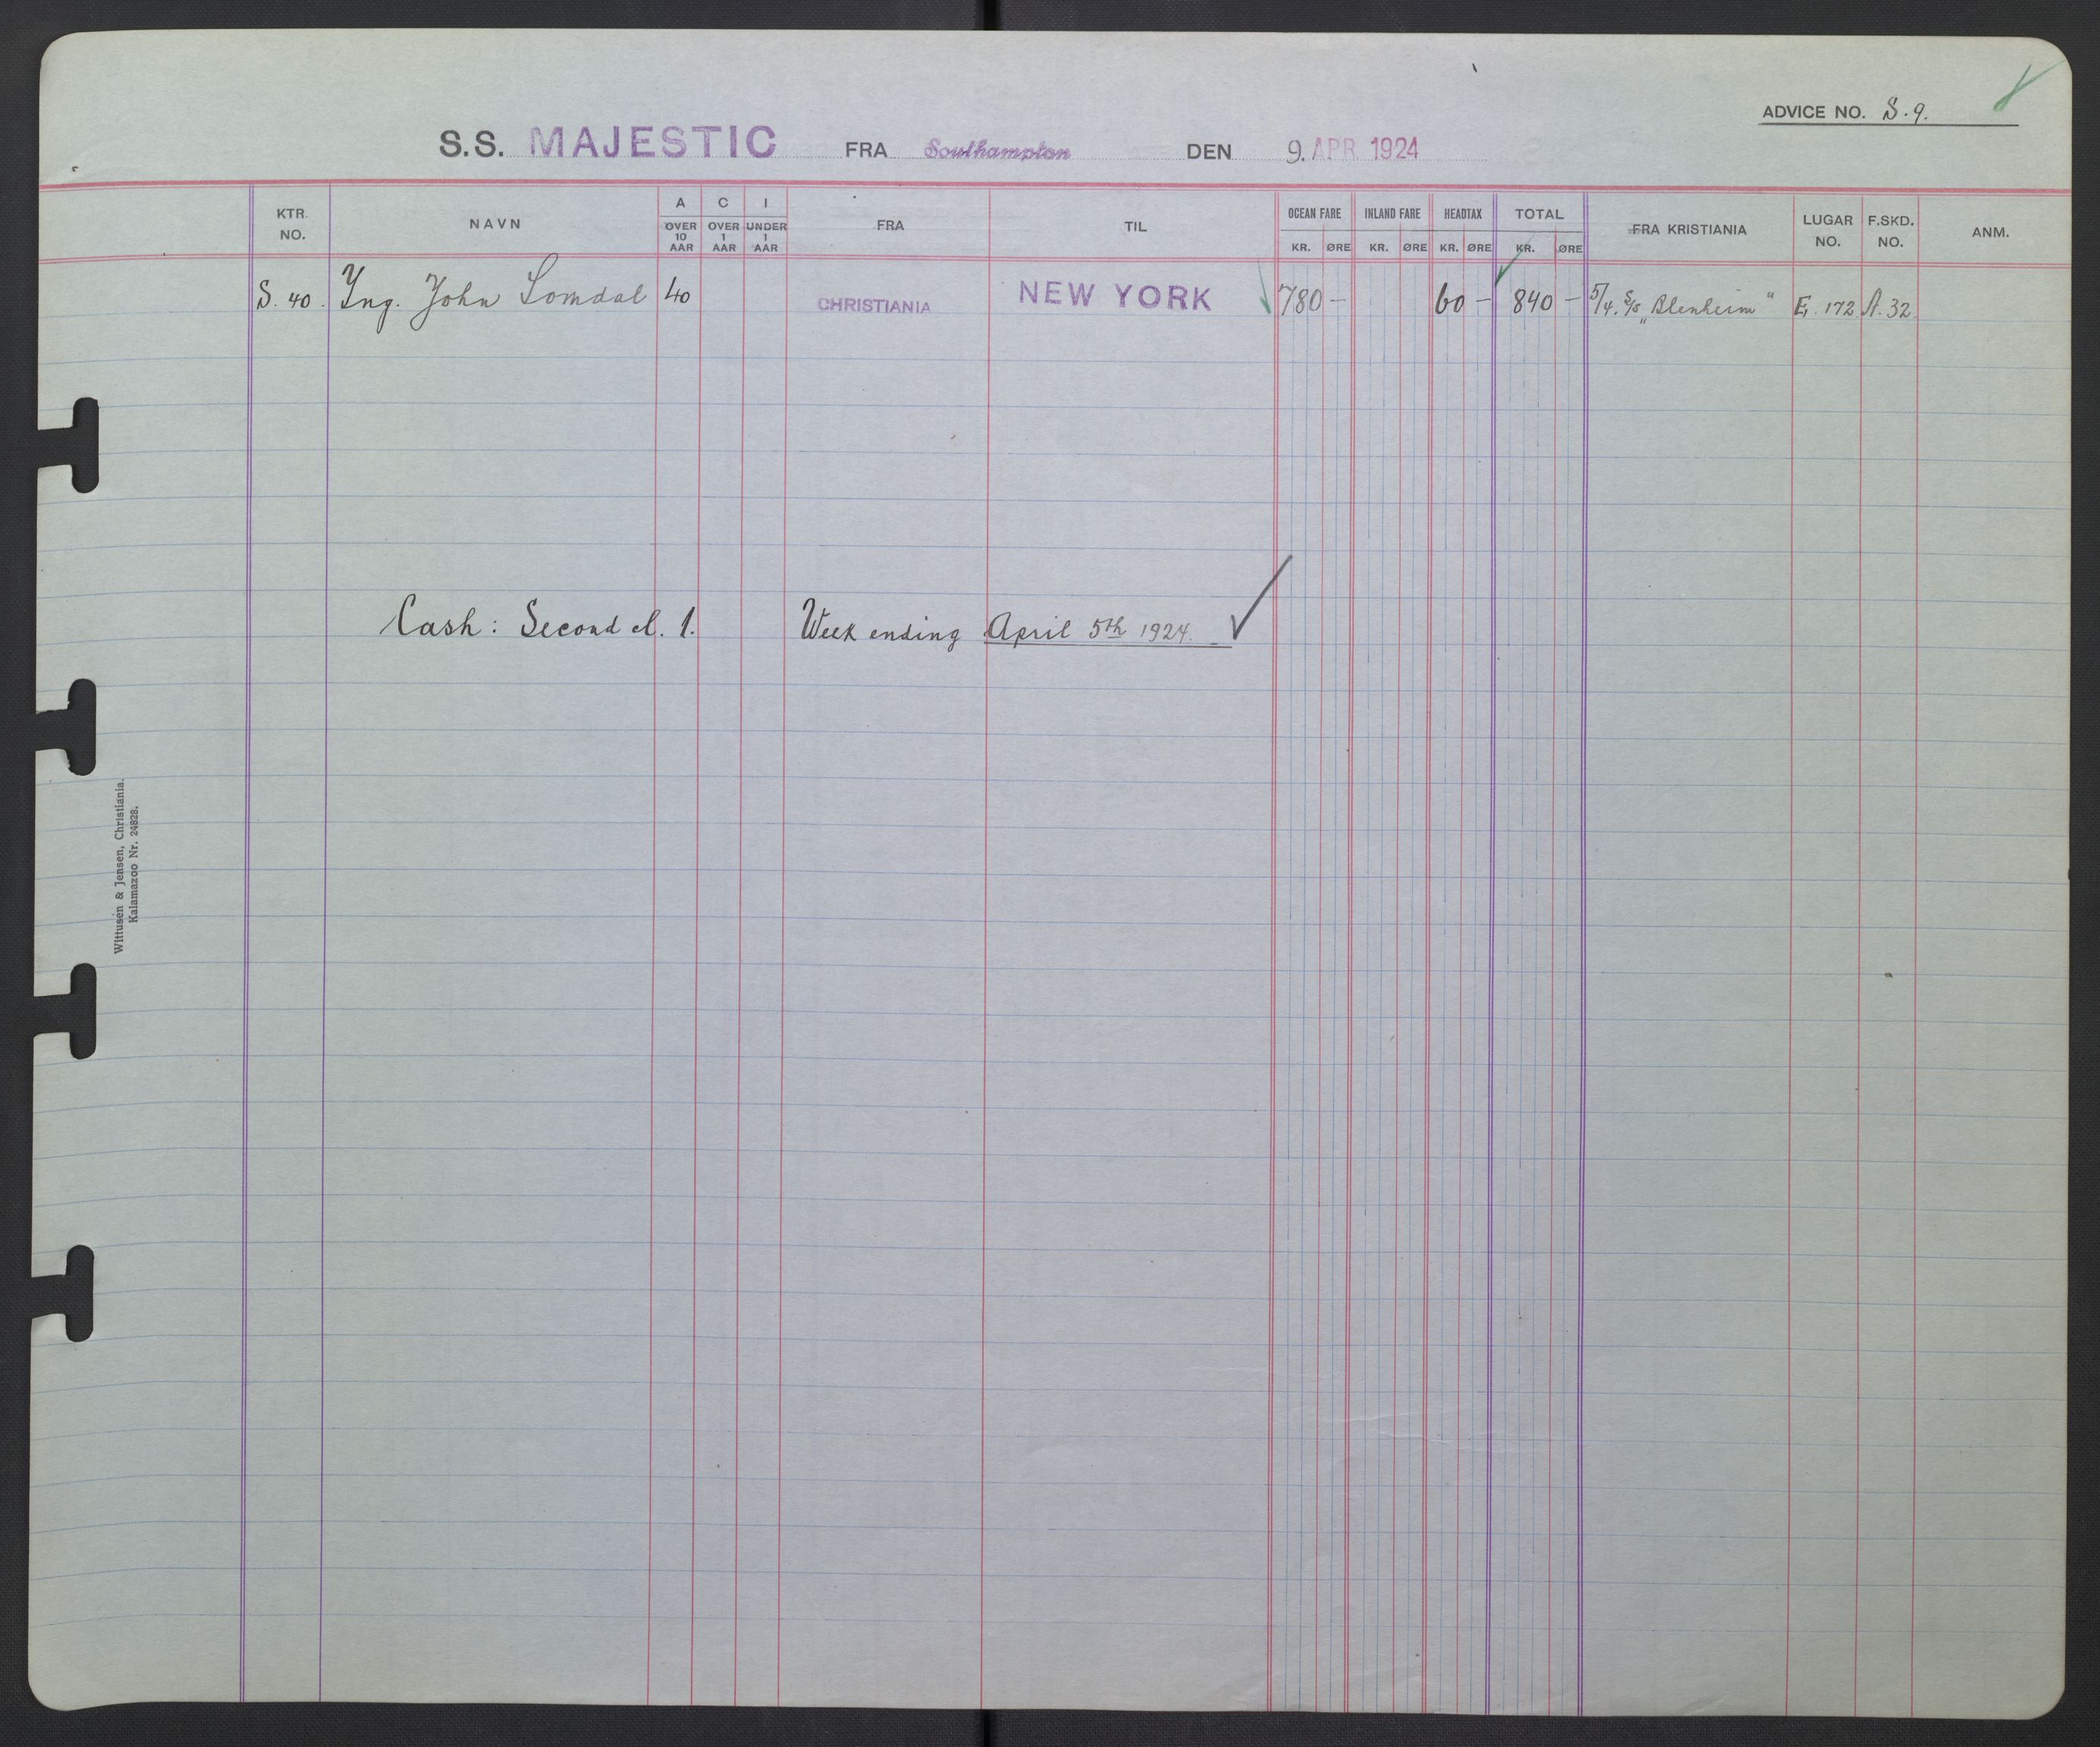 ADVICE NO. S. 9.
S.S. MAJESTIC FRA Southampton DEN 9. APR. 1924
KTR. NO. NAVN A OVER 10 AAR C OVER 1 AAR I UNDER 1 AAR FRA TIL OCEAN FARE KR. ØRE INLAND FARE KR. ØRE HEADTAX KR. ØRE TOTAL KR. ØRE FRA KRISTIANIA LUGAR NO. F.SKD. NO. ANM.
S. 40. Ing. John Lomdal 40 CHRISTIANIA NEW YORK 780 - 60 - 840 - 5/4. S/S „Blenheim" E. 172 A. 32
Cash: Second cl. 1. Week ending April 5th 1924.
Wittusen & Jensen, Christiania.
Kalamazoo Nr. 24828.